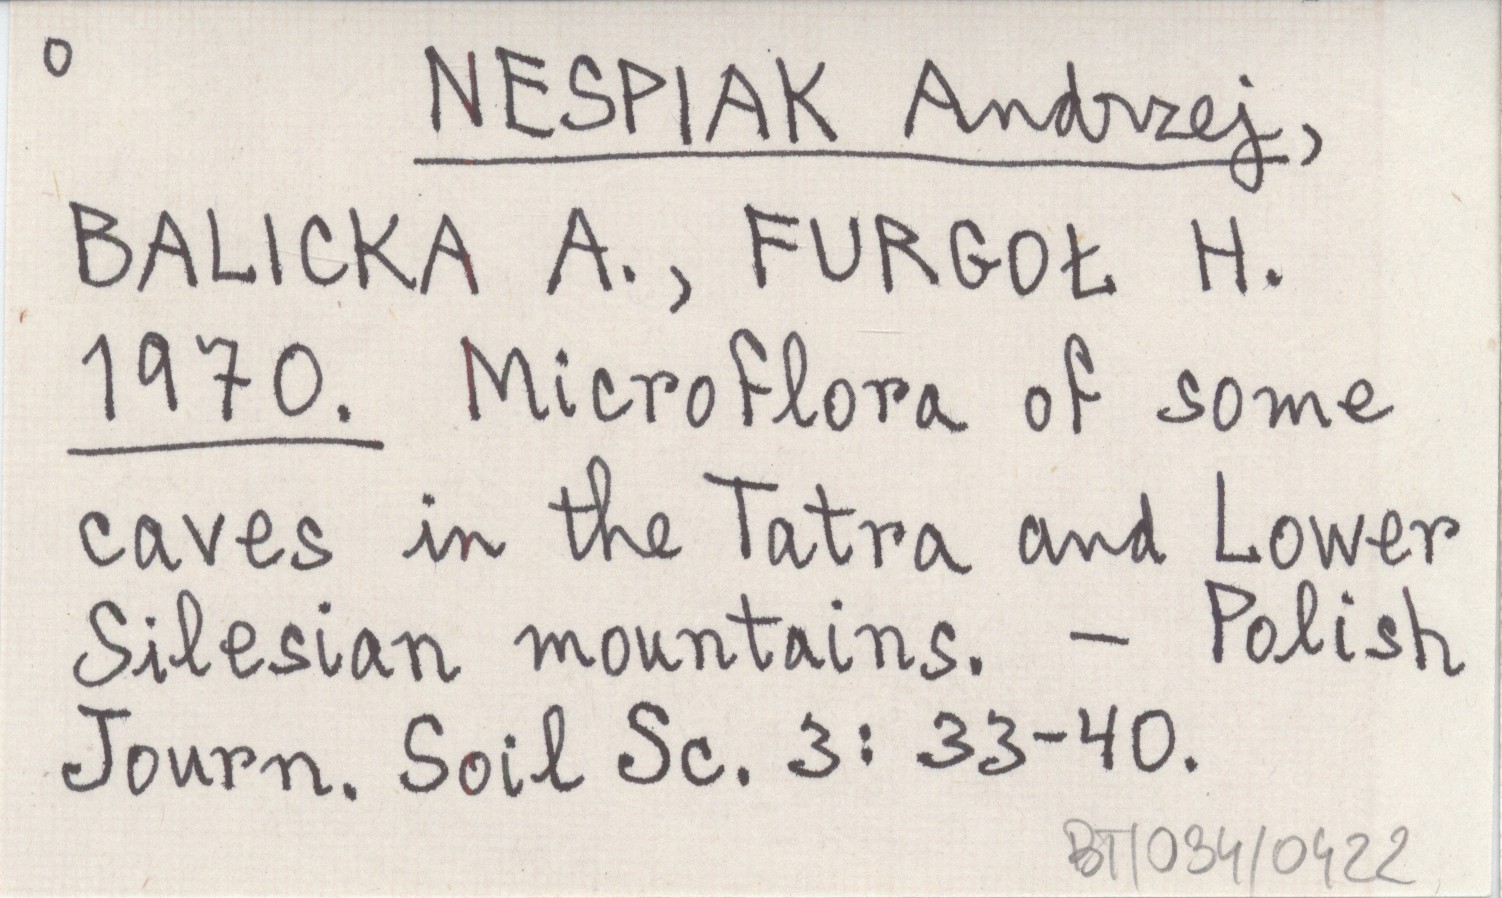 o NESPIAK Andrzej,
BALICKA A., FURGOŁ H.
1970. Microflora of some
caves in the Tatra and Lower
Silesian mountains. – Polish
Journ. Soil Sc. 3: 33-40.
BT/034/0422